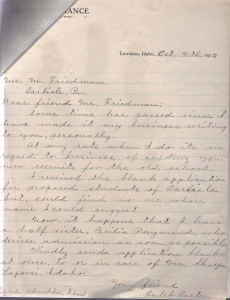 LIANCE
Lawson, Idaho, Oct. 4th 1915
Mr. M. Friedman,
Carlisle, Pa.
Dear friend Mr. Friedman:
Some time has passed since I
have made it my business writing
to you, personally.
At any rate when I do its in
regard to business, of sending you
new recruits for the old school.
I received the blank application
for proposed students of Carlisle
but, could find no one whose
name I could suggest.
Now, it happens that I have
a half sister, Raymond, who
desires admission as soon as possible.
Kindly send application blanks
at once to or in care of Mr.
Lapwai, Idaho.
Your friend
Caleb Carter